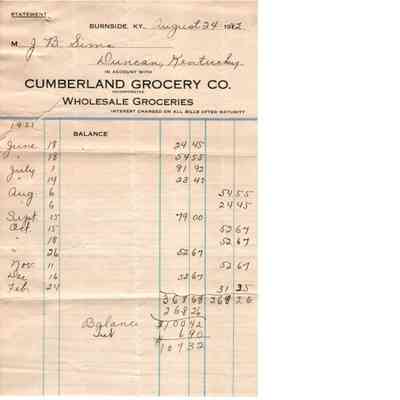 STATEMENT
BURNSIDE, KY. August 24 1922
M J B Sims
Duncan, Kentucky
IN ACCOUNT WITH
CUMBERLAND GROCERY CO.
INCORPORATED
WHOLESALE GROCERIES
INTEREST CHARGED ON ALL BILLS AFTER MATURITY
1921
BALANCE
June 18 24 45
" 18 54 55
July 1 91 92
" 14 23 42
Aug 6 54 55
" 6 24 45
Sept. 15 79 00
Oct. 15 52 67
" 18 52 67
" 26 52 67
Nov 11 52 67
Dec 16 52 67
Feb. 24 31 25
368 68 268 26
268 26
Balance $100 42
Int 6 90
$107 32